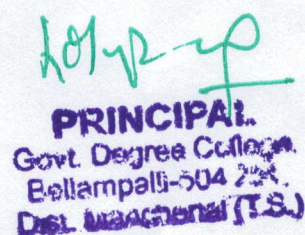 PRINCIPAL
Govt. Degree College,
Bellampalli-504
Dist. Mancherial (T.S.)